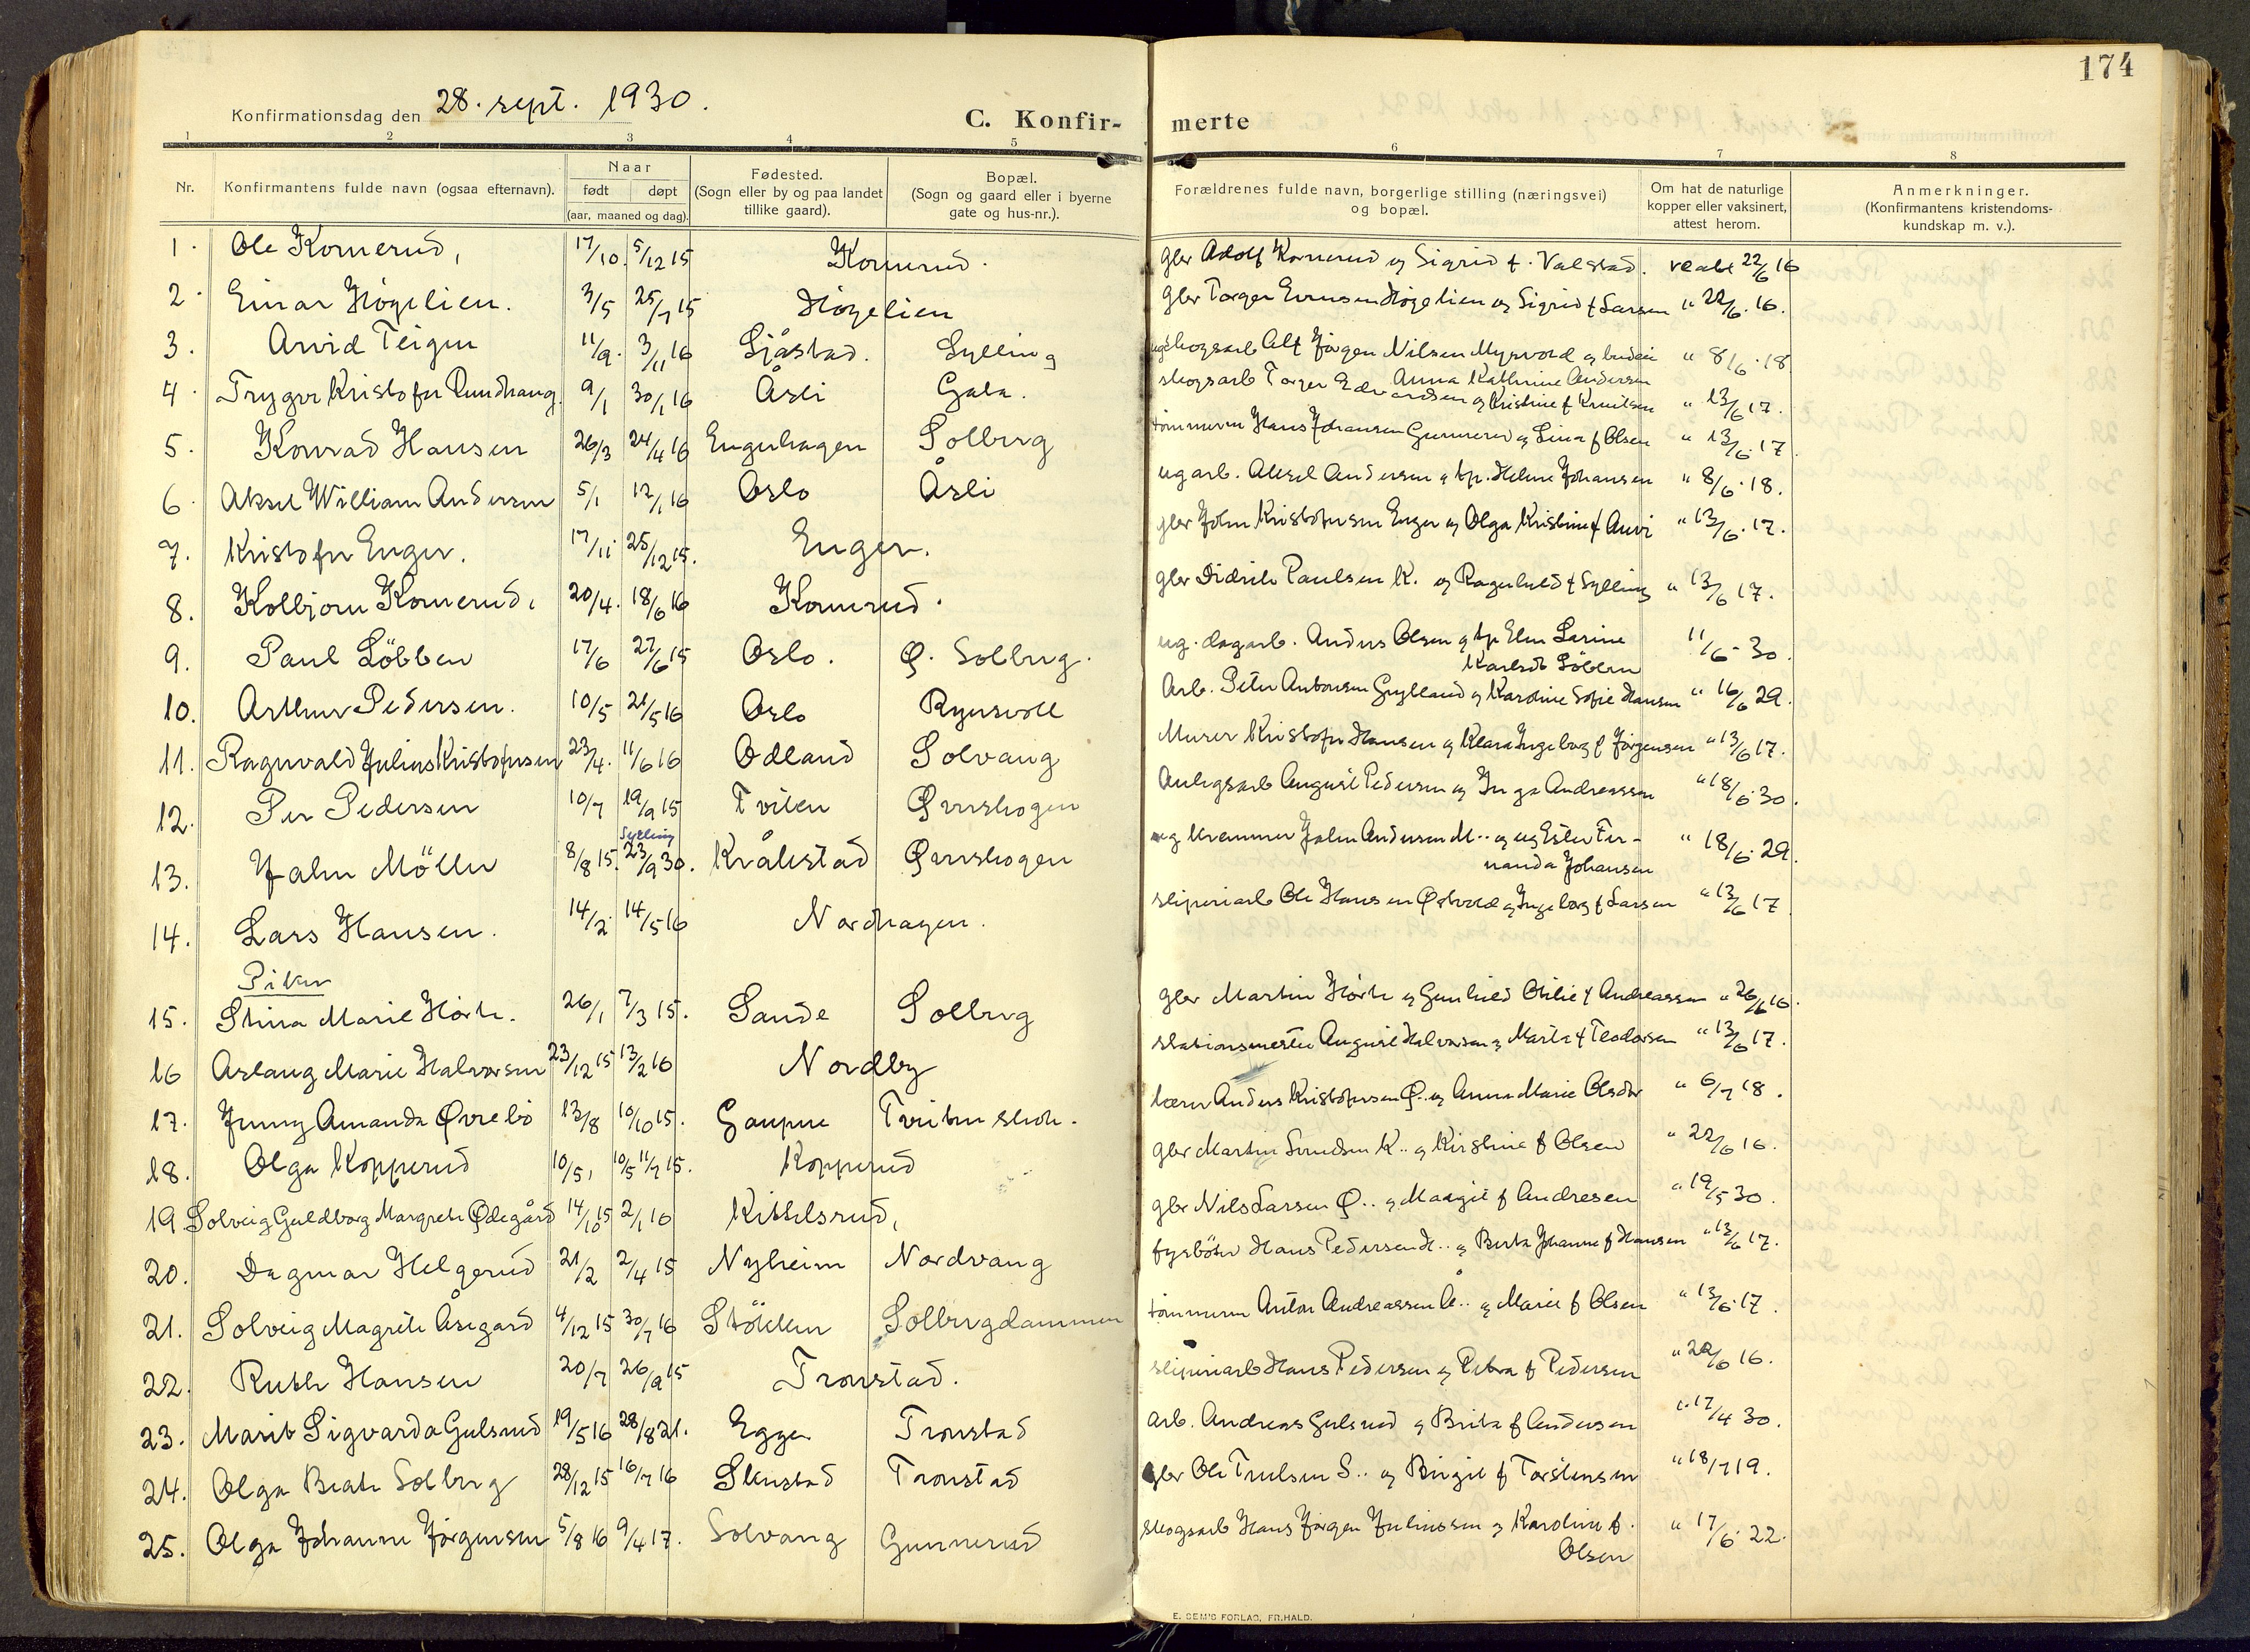 174
Konfirmationsdag den 28. sept. 1930.
C. Konfir- merte
1 2 3 4 5 6 7 8
Nr. Konfirmantens fulde navn (ogsaa efternavn). Naar født døpt (aar, maaned og dag). Fødested. (Sogn eller by og paa landet tillike gaard). Bopæl. (Sogn og gaard eller i byerne gate og hus-nr.). Forældrenes fulde navn, borgerlige stilling (næringsvei) og bopæl. Om hat de naturlige kopper eller vaksinert, attest herom. Anmerkninger. (Konfirmantens kristendoms- kundskap m. v.).
1. Ole Komerud, 17/10. 5/12 15 Komerud. gbr Adolf Komerud og Sigrid f. Valstad. 22/6 16
2. Einar Högelien. 3/5 25/7 15 Högelien gbr Torger Evensen Högelien og Sigrid f Larsen " 22/6. 16.
3. Arvid Teigen 11/9. 3/11 16 Sjåstad. Sylling skogsarb Alf Jörgen Nilsen Myrvold og Anna Kathrine Andersen " 8/6. 18
4. Trygve Kristofer Rundhaug. 9/1 30/1 16 Åsli Gala. skogsarb Torger Edvardsen og Kristine f Knutsen " 13/6 17.
5. Konrad Hansen 26/3 24/4 16 Engerhagen Solberg tömmerm Hans Johansen Gunnerud og Lina f Olsen " 13/6. 17
6. Aksel William Andersen 5/1 12/1 16 Oslo Åsli ug arb. Aksel Andersen og tp. Helene Johansen " 8/6. 18.
7. Kristofer Enger. 17/11 25/12 15. Enger. gbr John Kristofersen Enger og Olga Kristine f Auvi " 13/6. 17.
8. Kolbjörn Komerud. 20/4. 18/6 16 Komerud. gbr Didrik Paulsen K. og Ragnhild f Sylling " 13/6 17.
9. Paul Löbben 17/6 27/6 15 Oslo. Ø. Solberg. ug. dagarb. Anders Olsen og tp Elen Larine Karlsdt Löbben 11/6. 30.
10. Arthur Pedersen. 10/5 21/5 16 Oslo Rynsvoll Arb. Peter Antonsen Grylland og Karoline Sofie Hansen " 16/6 29.
11. Ragnvald Julius Kristofersen 23/4. 11/6 16 Odland Solvang Murer Kristofer Hansen og Klara Ingeborg f Jörgensen " 13/6 17.
12. Per Pedersen 10/7 19/9 15 Tviten Øverskogen Anlegsarb August Pedersen og Inga Andreassen " 18/6. 30.
13. John Möller 8/8 15. Sylling 23/9 30. Kråkstad Øverskogen ug kremmer John Andersen M.. og ug Ester Fernanda Johansen " 18/6. 29.
14. Lars Hansen. 14/2 14/5 16 Nordhagen. sliperiarb Ole Hansen Östvold og Ingeborg f Larsen " 13/6 17
Piker
15. Stina Marie Hörte. 26/1 7/3 15. Sande Solberg gbr Martin Hörte og Gunhild Otilie f Andreassen " 26/6 16.
16 Aslaug Marie Halvorsen 23/12 15 13/2 16 Nordby stationsmester August Halvorsen og Marta f Teodorsen " 13/6 17.
17. Jenny Amanda Øvrebö 13/8 10/10 15. Gaupne Tviten skole. lærer Anders Kristofersen Ø.. og Anna Marie Olsdtr " 6/7 18.
18. Olga Kopperud 10/5, 10/5 11/7 15. Kopperud gbr Martin Svendsen K.. og Kirstine f Olsen " 22/6 16.
19 Solveig Guldborg Margrete Ødegård 14/10 15 2/1 16 Kittelsrud, gbr Nils Larsen Ø.. og Margit f Andresen " 19/5 30.
20. Dagmar Helgerud 21/2 2/4 15 Nyheim Nordvang fyrböter Hans Pedersen H.. og Berta Johanne f Hansen " 13/6 17.
21. Solveig Magrete Åsegard 4/12 15 30/7 16 Stökken Solbergdammen tömmerm Anton Andreassen Å.. og Marie f Olsen " 13/6. 17.
22. Ruth Hansen 20/7 26/9 15 Tronstad. sliperiarb Hans Pedersen og Petra f Pedersen " 22/6 16.
23. Marit Sigvarda Gulsrud 19/5 16 28/8 21. Egge Tronstad arb. Andreas Gulsrud og Brita f Andersen " 17/4 30.
24. Olga Beate Solberg 28/12 15 16/7 16 Stenstad Tronstad gbr Ole Truelsen S.. og Birgit f Torstensen " 18/7 19.
25. Olga Johanne Jörgensen 5/8 16 9/4 17. Solvang Gunnerud skogsarb Hans Jörgen Juliussen og Karoline f. Olsen " 17/6. 22.
E. SEM'S FORLAG, FR.HALD.